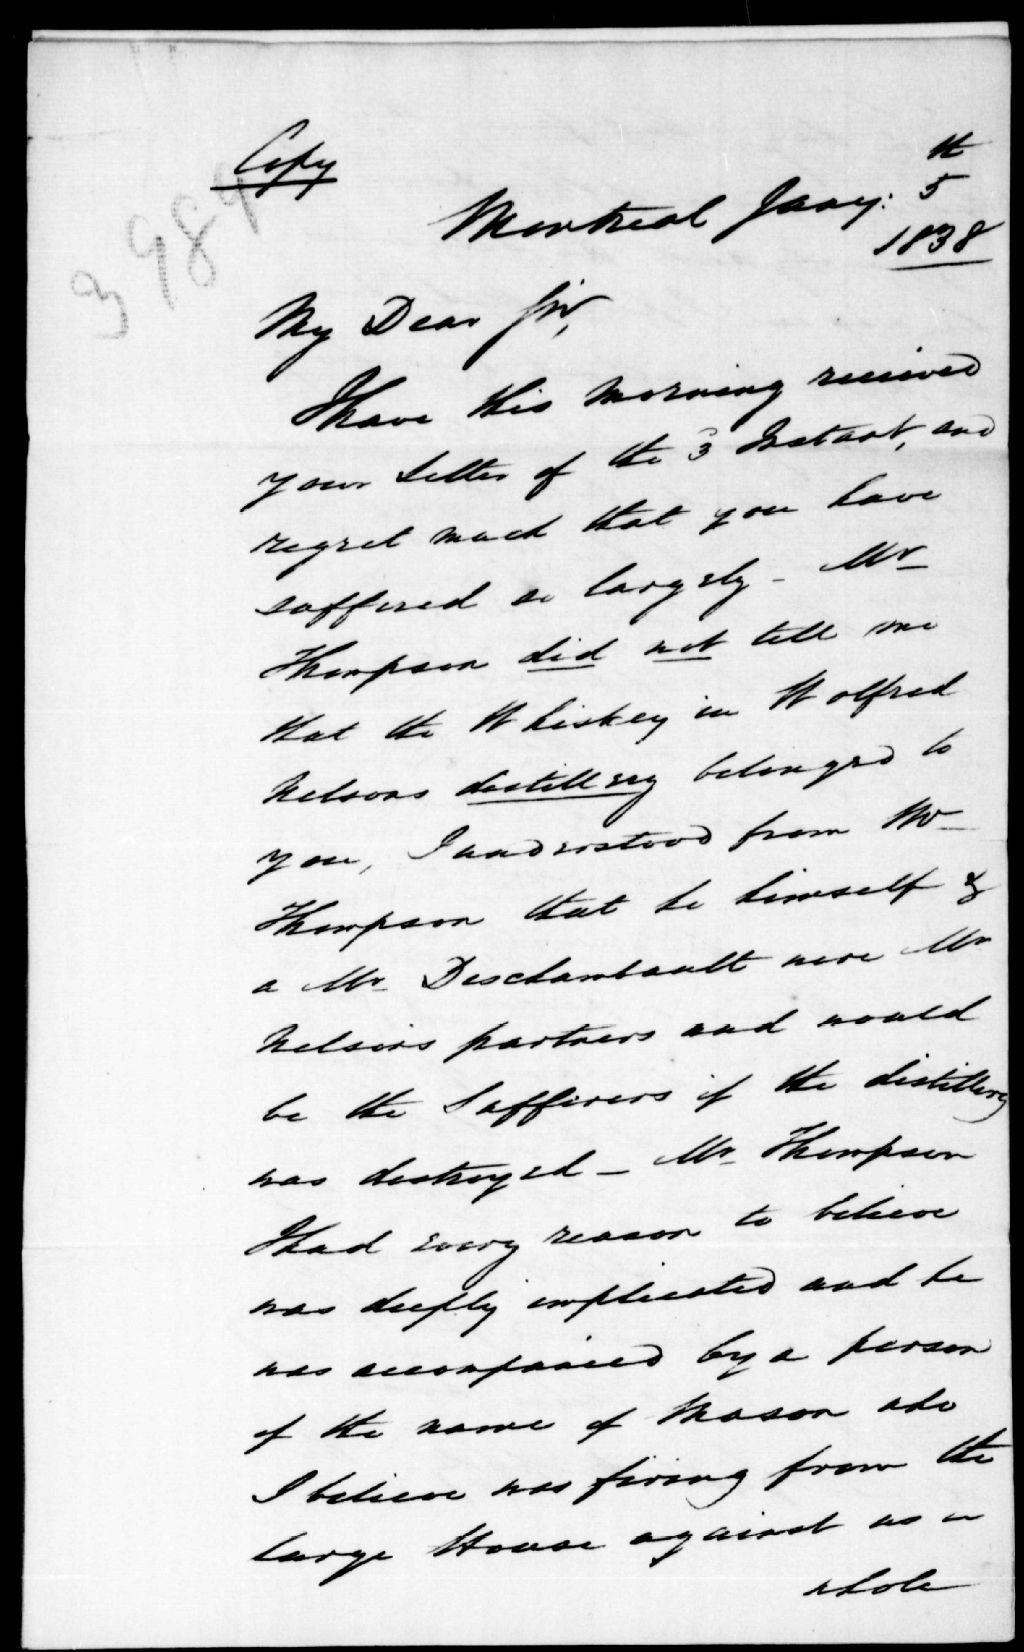 Copy
3984
Montreal Jany: 5th
1838
My Dear Sir,
I have this morning received
your Letter of the 3 Instant, and
regret much that you have
suffered so largely - Mr
Thompson did not tell me
that the Whiskey in Wolfred
Nelsons distillery belonged to
you, I understood from Mr
Thompson that he himself &
a Mr Deschambault were Mr
Nelsons partners and would
be the Sufferers if the distillery
was destroyed - Mr Thompson
I had every reason to believe
was deeply implicated and he
was accompanied by a person
of the name of Mason who
I believe was firing from the
large House against us a
whole